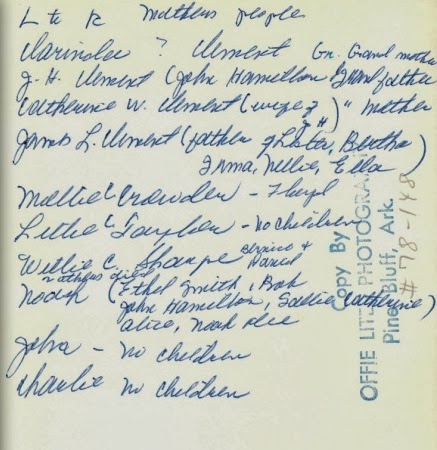 L to R Mothers people
Clarinda ? Clement Gr. Grand mother
J. H. Clement (John Hamellon Grand father
Catherine W. Clement (wife of J H) " Mother
James L. Clement (father of Lester, Bertha
Irma, Nellie, Ella)
Mollie C Crowder - Floyd
Lethe C - No children
Willie C. Sharpe Clerico + Hazel
Mothers died
Noah (Ethel Smith, Bob
John Hamellon, Sallie (Catherine)
Alice, Noah Dee
John - No children
Charlie No children
Copy By
OFFIE LITES PHOTOGRAPH
Pine Bluff, Ark.
# 78-148